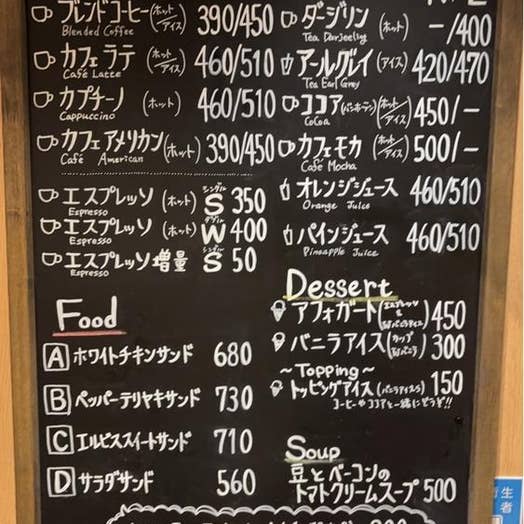 ブレンドコーヒー (ホット/アイス) 390/450
Blended Coffee
カフェラテ (ホット/アイス) 460/510
Café Latte
カプチーノ (ホット) 460/510
Cappuccino
カフェアメリカン (ホット) 390/450
Café American
エスプレッソ (ホット) シングル S 350
Espresso
エスプレッソ (ホット) ダブル W 400
Espresso
エスプレッソ増量 シングル S 50
Espresso
Food
A ホワイトチキンサンド 680
B ペッパーテリヤキサンド 730
C エルビススイートサンド 710
D サラダサンド 560
ダージリン (ホット) -/400
Tea Darjeeling
アールグレイ (アイス) 420/470
Tea Earl Grey
ココア (バンホーテン) (ホット/アイス) 450/-
CoCoa
カフェモカ (ホット/アイス) 500/-
Café Mocha
オレンジジュース 460/510
Orange Juice
パインジュース 460/510
Pineapple Juice
Dessert
アフォガート (エスプレッソ & バニラアイス) 450
バニラアイス 300
～Topping～
トッピングアイス (バニラアイス) 150
コーヒーやココアと一緒にどうぞ!!
Soup
豆とベーコンの
トマトクリームスープ 500
生
者